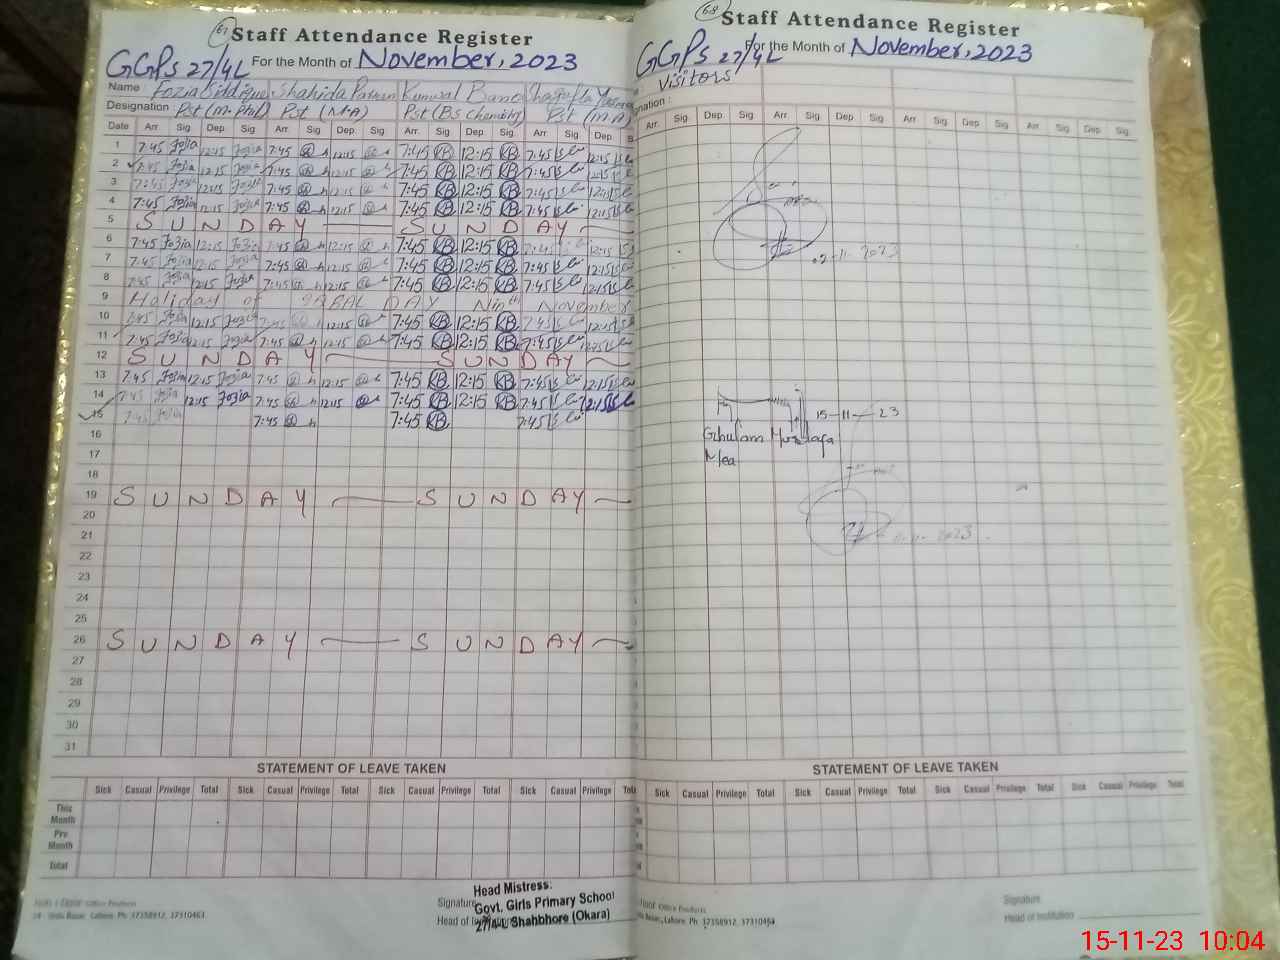 61
Staff Attendance Register
GGPS 27/4L For the Month of November, 2023
Name Fozia Siddique Shahida Parveen Kunwal Bano Shagufta
Designation : Pst (M-Phil) Pst (M.A) Pst (Bs chemistry) Pst (M.A)
Date Arr Sig Dep Sig Arr. Sig Dep. Sig Arr. Sig Dep. Sig Arr. Sig Dep.
1 7:45 Fozia 12:15 Fozia 7:45 12:15 7:45 KB 12:15 KB 7:45 12:15
2 7:45 Fozia 12:15 Fozia 7:45 12:15 7:45 KB 12:15 KB 7:45 12:15
3 7:45 Fozia 12:15 Fozia 7:45 12:15 7:45 KB 12:15 KB 7:45 12:15
4 7:45 Fozia 12:15 Fozia 7:45 12:15 7:45 KB 12:15 KB 7:45 12:15
5 SUNDAY SUNDAY
6 7:45 Fozia 12:15 Fozia 7:45 12:15 7:45 KB 12:15 KB 7:45 12:15
7 7:45 Fozia 12:15 Fozia 7:45 12:15 7:45 KB 12:15 KB 7:45 12:15
8 7:45 Fozia 12:15 Fozia 7:45 12:15 7:45 KB 12:15 KB 7:45 12:15
9 Holiday of IQBAL DAY Ninth November
10 7:45 Fozia 12:15 Fozia 7:45 12:15 7:45 KB 12:15 KB 7:45 12:15
11 7:45 Fozia 12:15 Fozia 7:45 12:15 7:45 KB 12:15 KB 7:45 12:15
12 SUNDAY SUNDAY
13 7:45 Fozia 12:15 Fozia 7:45 12:15 7:45 KB 12:15 KB 7:45 12:15
14 7:45 Fozia 12:15 Fozia 7:45 12:15 7:45 KB 12:15 KB 7:45 12:15
15 7:45 Fozia 7:45 7:45 KB 7:45
16
17
18
19 SUNDAY SUNDAY
20
21
22
23
24
25
26 SUNDAY SUNDAY
27
28
29
30
31
STATEMENT OF LEAVE TAKEN
Sick Casual Privilege Total Sick Casual Privilege Total Sick Casual Privilege Total Sick Casual Privilege
This Month
Pre Month
Total
Head Mistress:
Signature Govt. Girls Primary School
Head of 27/4-L Shahbhore (Okara)
Lahore. Ph: 37358912, 37310463
68
Staff Attendance Register
GGPS 27/4L For the Month of November, 2023
Visitors
Arr. Sig Dep. Sig Arr. Sig Dep Sig Arr. Sig Dep. Sig Arr. Sig Dep. Sig.
15-11-23
Ghulam Murtaza
Mea
STATEMENT OF LEAVE TAKEN
Sick Casual Privilege Total Sick Casual Privilege Total Sick Casual Privilege Total Sick Casual Privilege Total
Signature
Head of Institution
Lahore. Ph. 37358912, 37310464
15-11-23 10:04